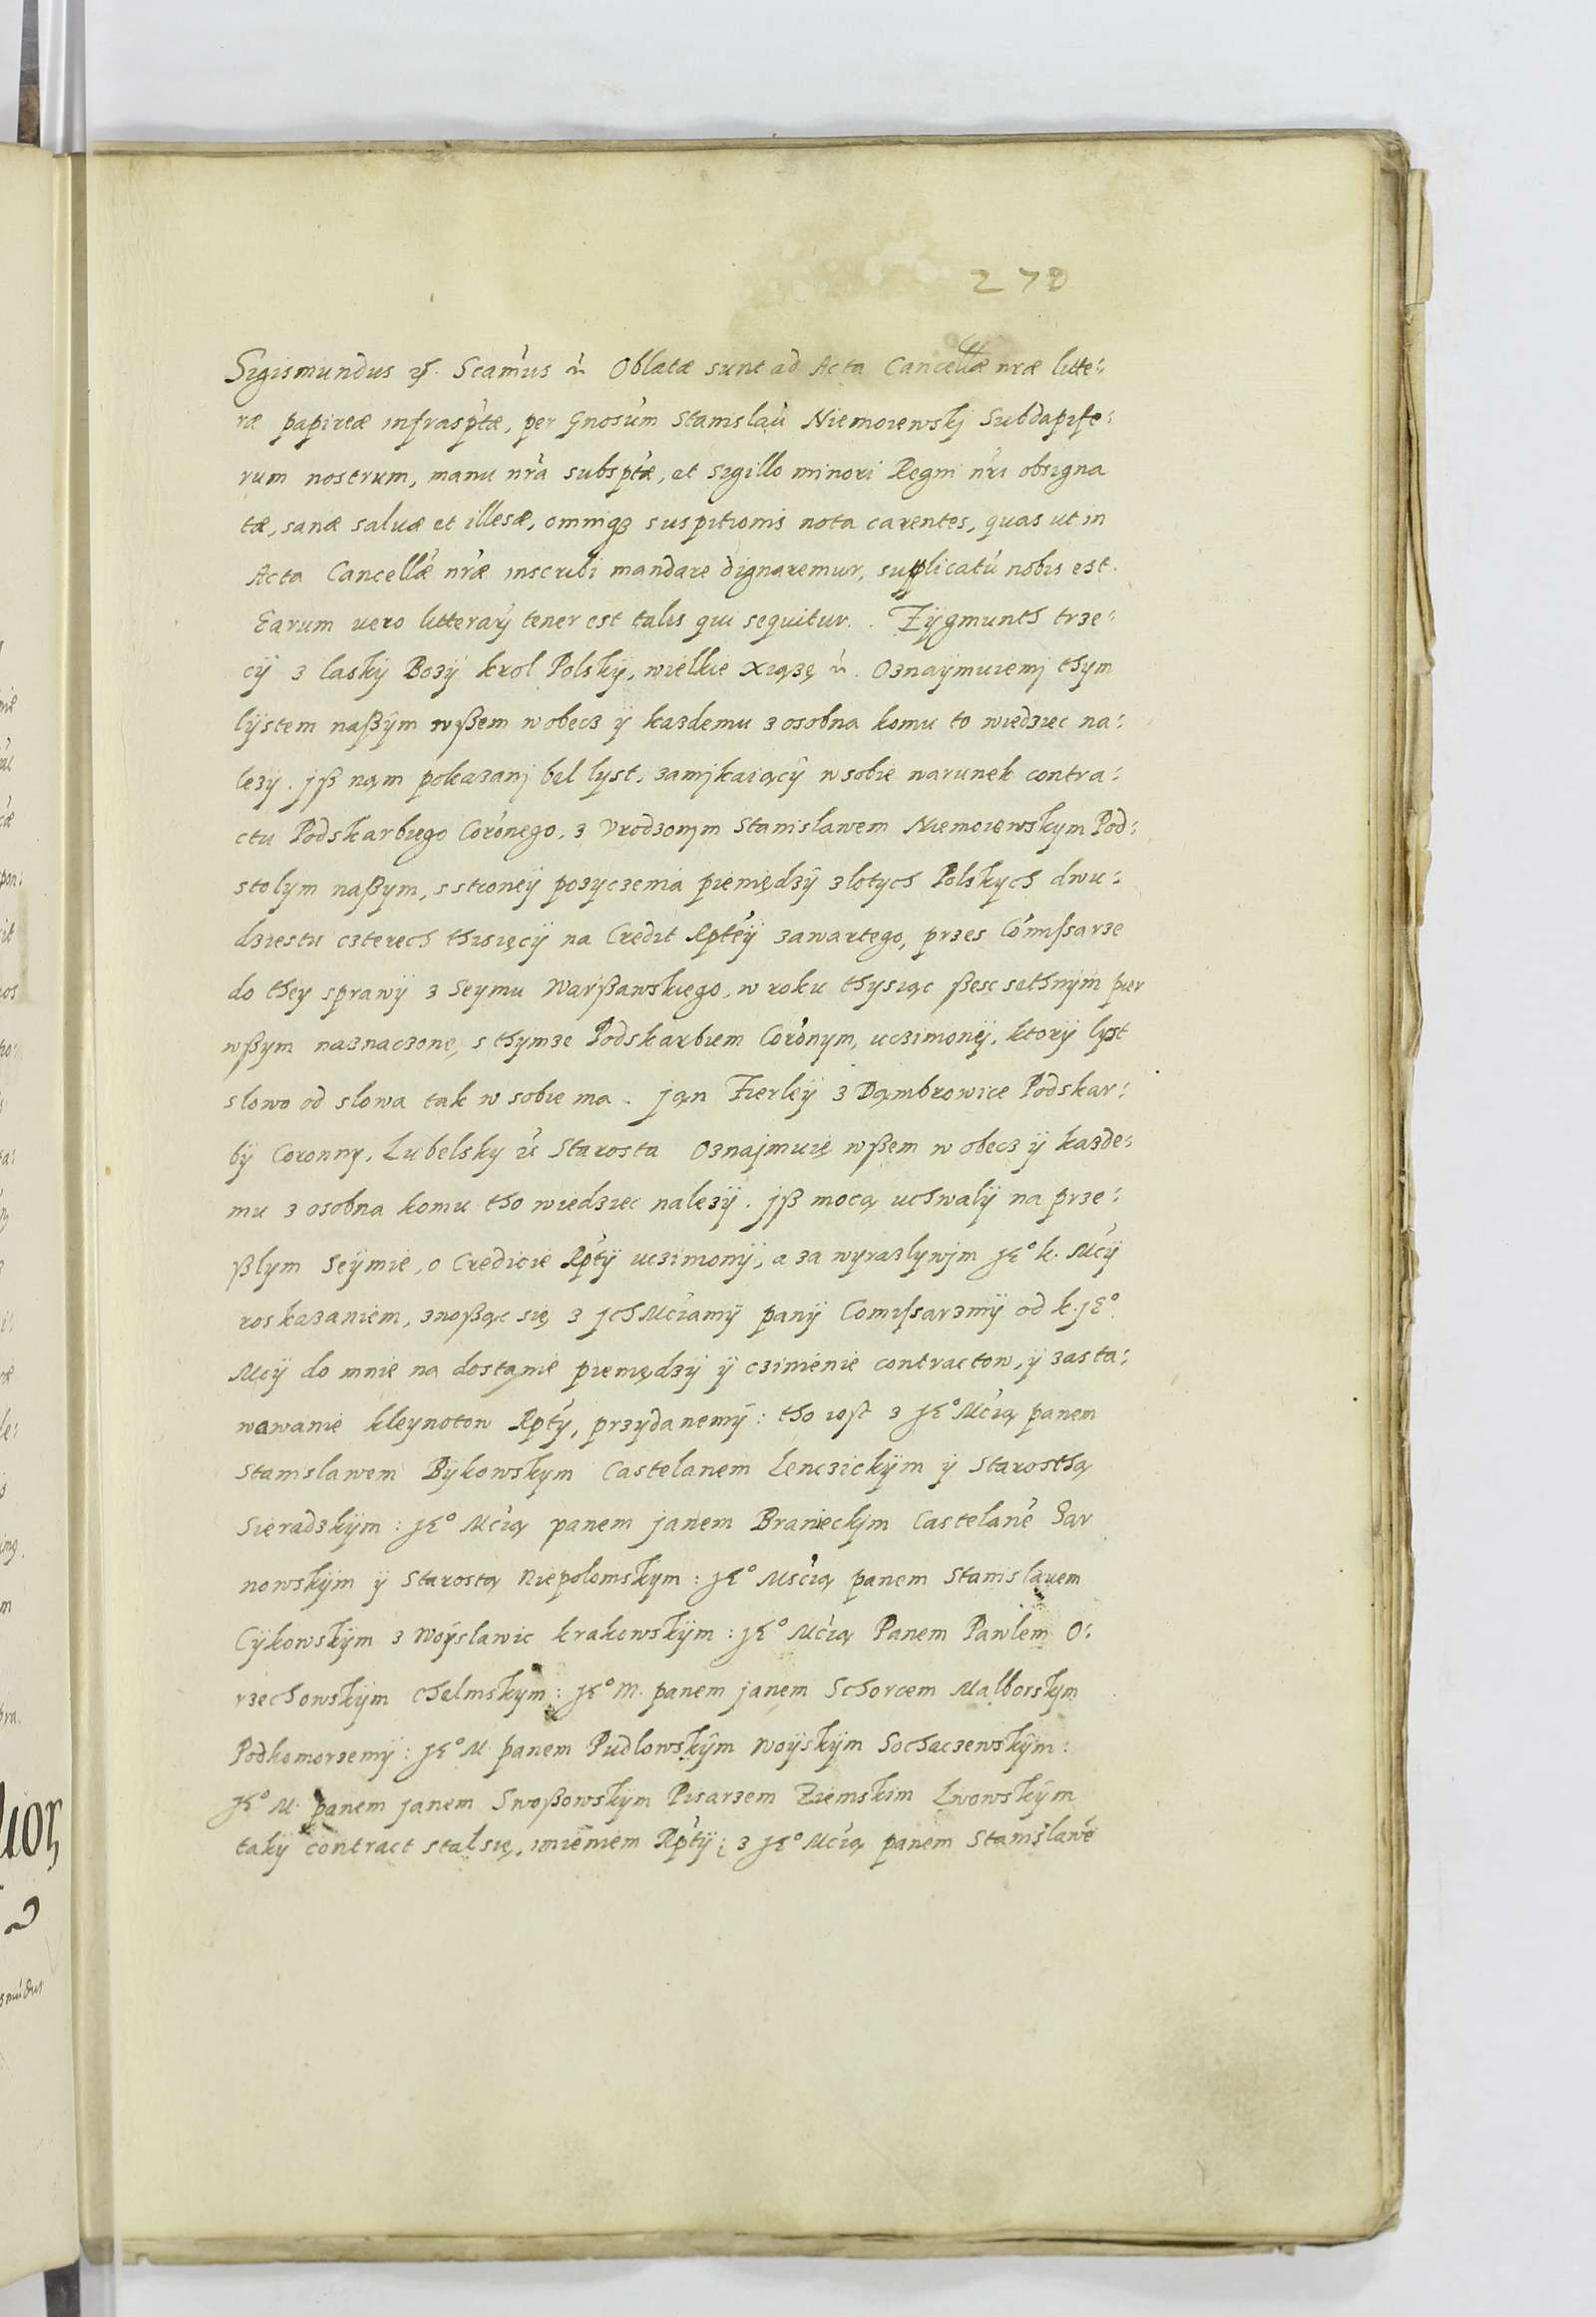 270
Sigismundus etc. Scamus etc. Oblatæ sunt ad Acta Cancellæ nræ litte:
ræ papireæ infrasptæ, per Gnosum Stanislau Niemoiewskj Subdapife:
rum nostrum, manu nra subsptæ, et sigillo minori Regni nri obsigna
tæ, sanæ saluæ et illesæ, omniqз suspitionis nota carentes, quas ut in
Acta Cancellæ nræ inscribi mandare dignaremur, supplicatu nobis est.
Earum uero litterarų tener est talis qui sequitur. Zÿgmunth trze:
cÿ z laskÿ Bozÿ krol Polskÿ, wielkie xiązę etc. Oznaÿmuiemj thym
lÿstem naßÿm wßem w obecz ÿ kazdemu z osobna komu to wiedziec na:
lezÿ. jß nąm pokazanj bel lyst, zamjkaiącÿ w sobie warunek contra:
ctu Podskarbiego Coronego, z Urodzonÿm Stanislawem Niemoiewskym Pod:
stolym naßym, s stroneÿ pozyczenia pieniędzÿ zlotych Polskych dwu:
dziestu czterech thisięcÿ na Credit Rpteÿ zawartego, przes Comissarze
do they sprawÿ z Seymu Warßawskiego, w roku thysiąc ßesc sethnÿm pier
wßym naznaczone, s thymze Podskarbiem Coronym, uczimonÿ, ktorÿ lyst
slowo od slowa tak w sobie ma. Jąn Fierleÿ z Dąmbrowice Podskar:
bÿ Coronny, Lubelsky etc Starosta Oznajmuię wßem w obecz ÿ kazde:
mu z osobna komu tho wiedziec nalezÿ. jß mocą uchwalÿ na prze:
ßlym Seÿmie, o Credicie Rptÿ uczimonÿ, a za wyrazlywjm JE° k. Mcÿ
roskazaniem, znoßąc się z JchMciamÿ panÿ Comissarzmÿ od k. JE°
Mcÿ do mnie na dostanie pieniędzÿ ÿ czinienie contractow, ÿ zasta:
wowanie kleynotow Rptÿ, przydanemÿ: tho iest z JE° Mcią panem
Stanislawem Bykowskym Castelanem Lenczickÿm ÿ Starosthą
Sieradzkÿm: JE° Mcią panem janem Braneckjm Castelane Zar
nowskÿm ÿ Starostą Niepolomskÿm: JE° Mscią panem Stanislauem
Cÿkowskÿm z Woÿslawic krakowskÿm: JE° Mcią Panem Pawlem O:
rzechowskÿm chelmskÿm: JE° M. panem janem Schorcem Malborskym
Podkomorzemÿ: JE° M panem Pudlowskÿm Woÿskÿm Sochaczewskÿm:
JE° M. panem janem Swoßowskÿm Pisarzem Ziemskim Lwowskÿm
takÿ contract stal się, imieniem Rptÿ; z JE° Mcią panem Stanislawe